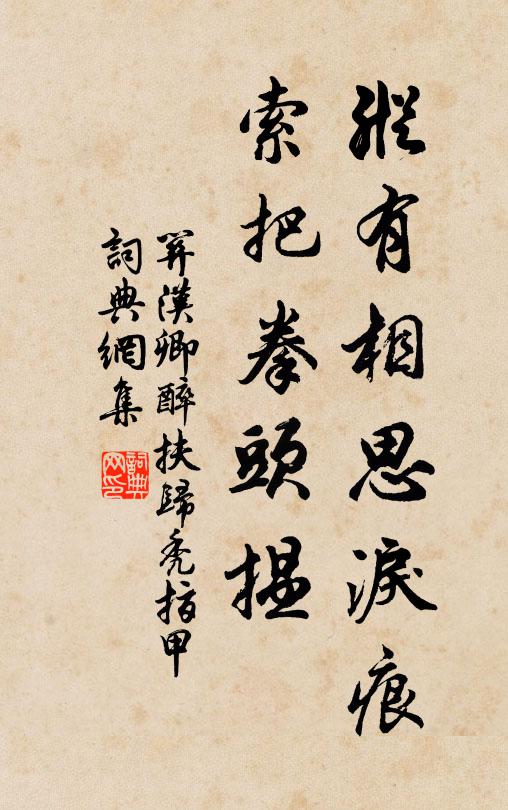 縱有相思淚痕
索把拳頭揾
關漢卿醉扶歸禿指甲
詞典網集
詞典網印